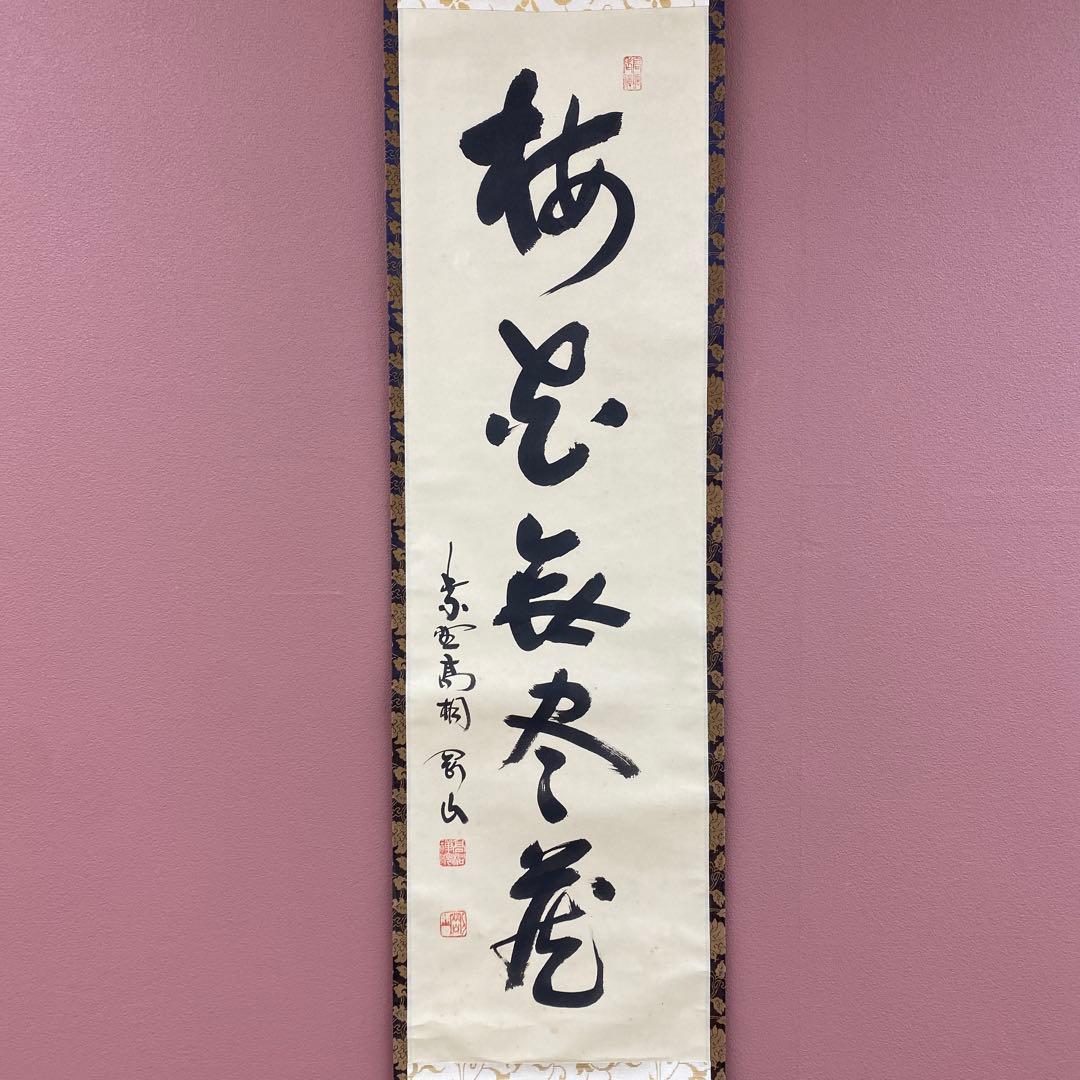 梅花無尽蔵
紫野高桐 剛山